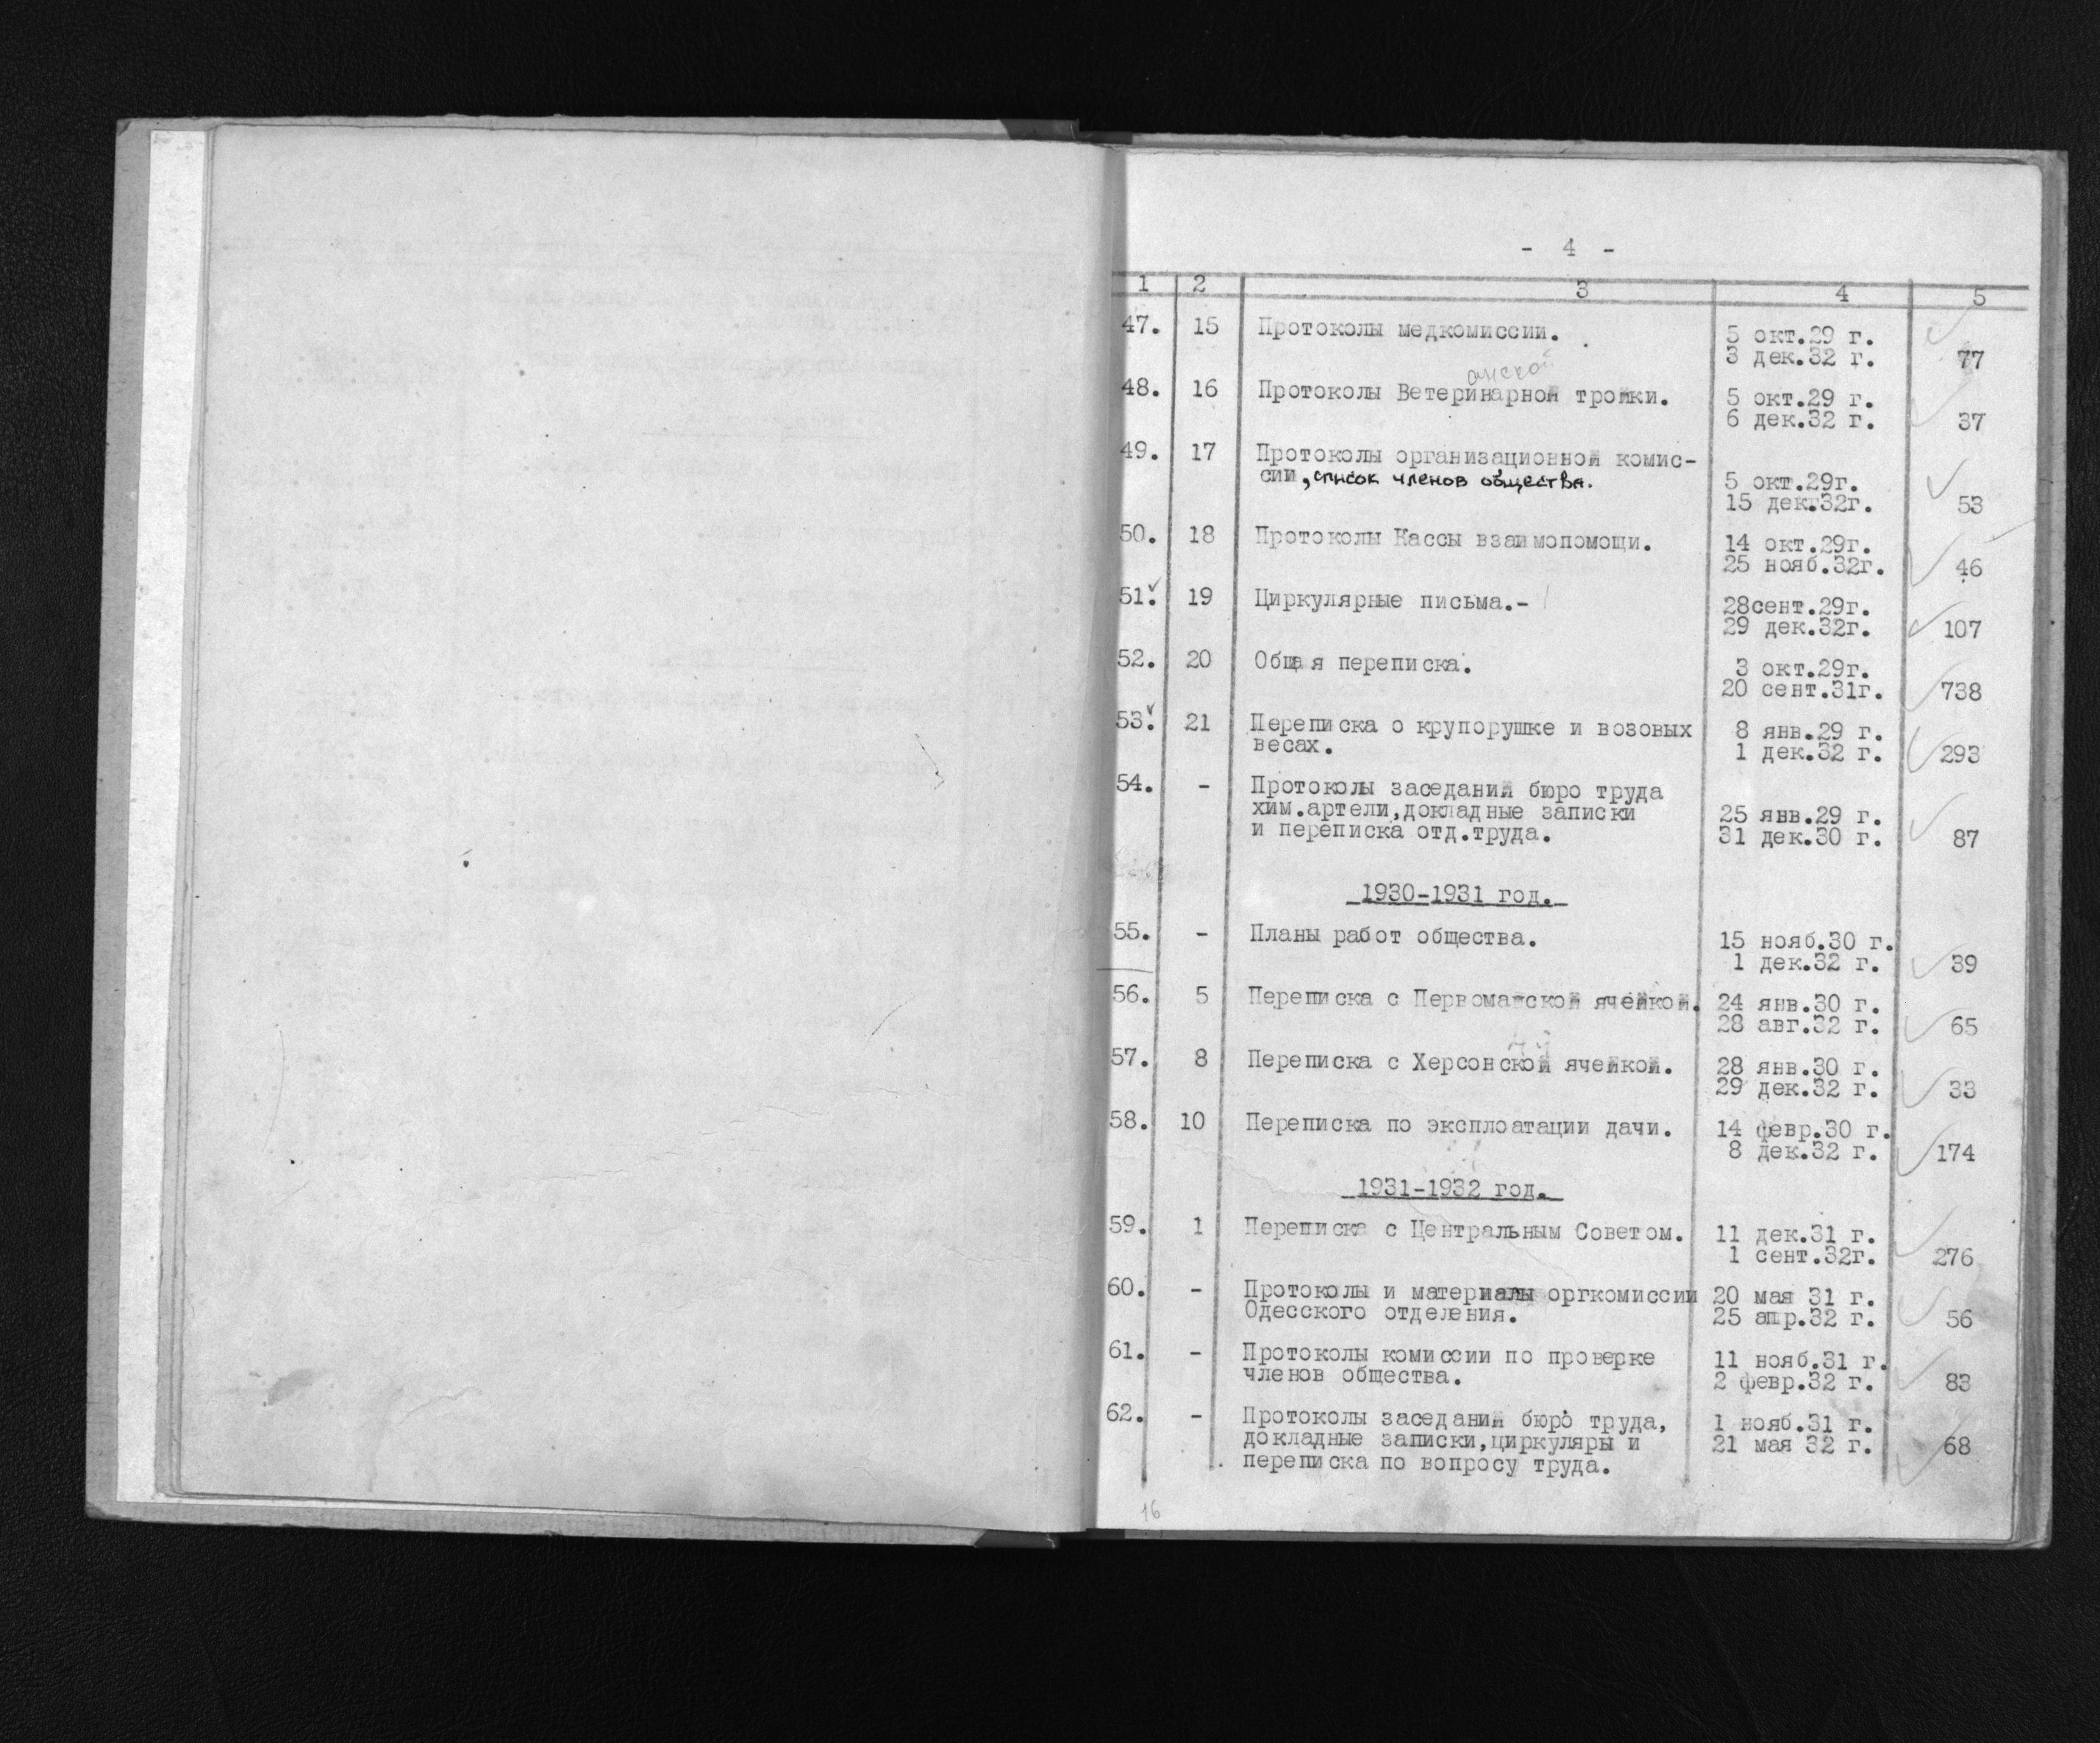 - 4 -
1 2 3 4 5
47. 15 Протоколы медкомиссии. 5 окт.29 г.
3 дек.32 г. 77
48. 16 Протоколы Ветеринарной тройки. 5 окт.29 г.
6 дек.32 г. 37
49. 17 Протоколы организационной комис-
сии, список членов общества. 5 окт.29г.
15 дек.32г. 53
50. 18 Протоколы Кассы взаимопомощи. 14 окт.29г.
25 нояб.32г. 46
51. 19 Циркулярные письма.- 28сент.29г.
29 дек.32г. 107
52. 20 Общая переписка. 3 окт.29г.
20 сент.31г. 738
53. 21 Переписка о крупорушке и возовых 8 янв.29 г.
весах. 1 дек.32 г. 293
54. - Протоколы заседаний бюро труда
хим.артели,докладные записки 25 янв.29 г.
и переписка отд.труда. 31 дек.30 г. 87
1930-1931 год.
55. - Планы работ общества. 15 нояб.30 г.
1 дек.32 г. 39
56. 5 Переписка с Первомайской ячейкой. 24 янв.30 г.
28 авг.32 г. 65
57. 8 Переписка с Херсонской ячейкой. 28 янв.30 г.
29 дек.32 г. 33
58. 10 Переписка по эксплоатации дачи. 14 февр.30 г.
8 дек.32 г. 174
1931-1932 год.
59. 1 Переписка с Центральным Советом. 11 дек.31 г.
1 сент.32г. 276
60. - Протоколы и материалы оргкомиссии 20 мая 31 г.
Одесского отделения. 25 апр.32 г. 56
61. - Протоколы комиссии по проверке 11 нояб.31 г.
членов общества. 2 февр.32 г. 83
62. - Протоколы заседаний бюро труда, 1 нояб.31 г.
докладные записки,циркуляры и 21 мая 32 г. 68
переписка по вопросу труда.
16